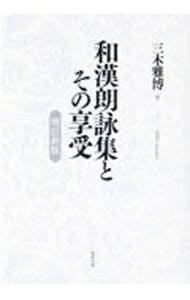 三木雅博
和漢朗詠集と
その享受